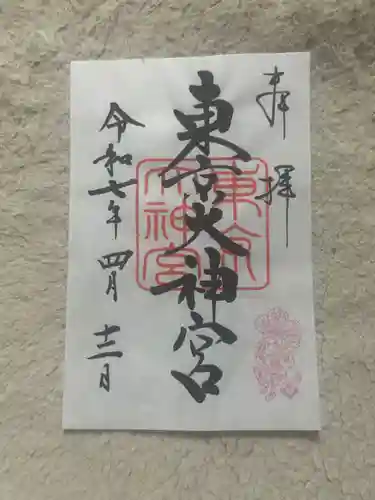 奉拝
東京大神宮
令和七年 四月 十二日
東京
大神宮